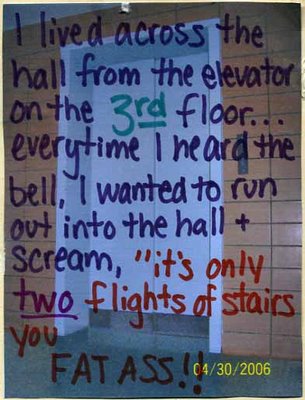 I lived across the
hall from the elevator
on the 3rd floor...
everytime I heard the
bell, I wanted to run
out into the hall +
scream, "it's only
two flights of stairs
you
FAT ASS!!
04/30/2006